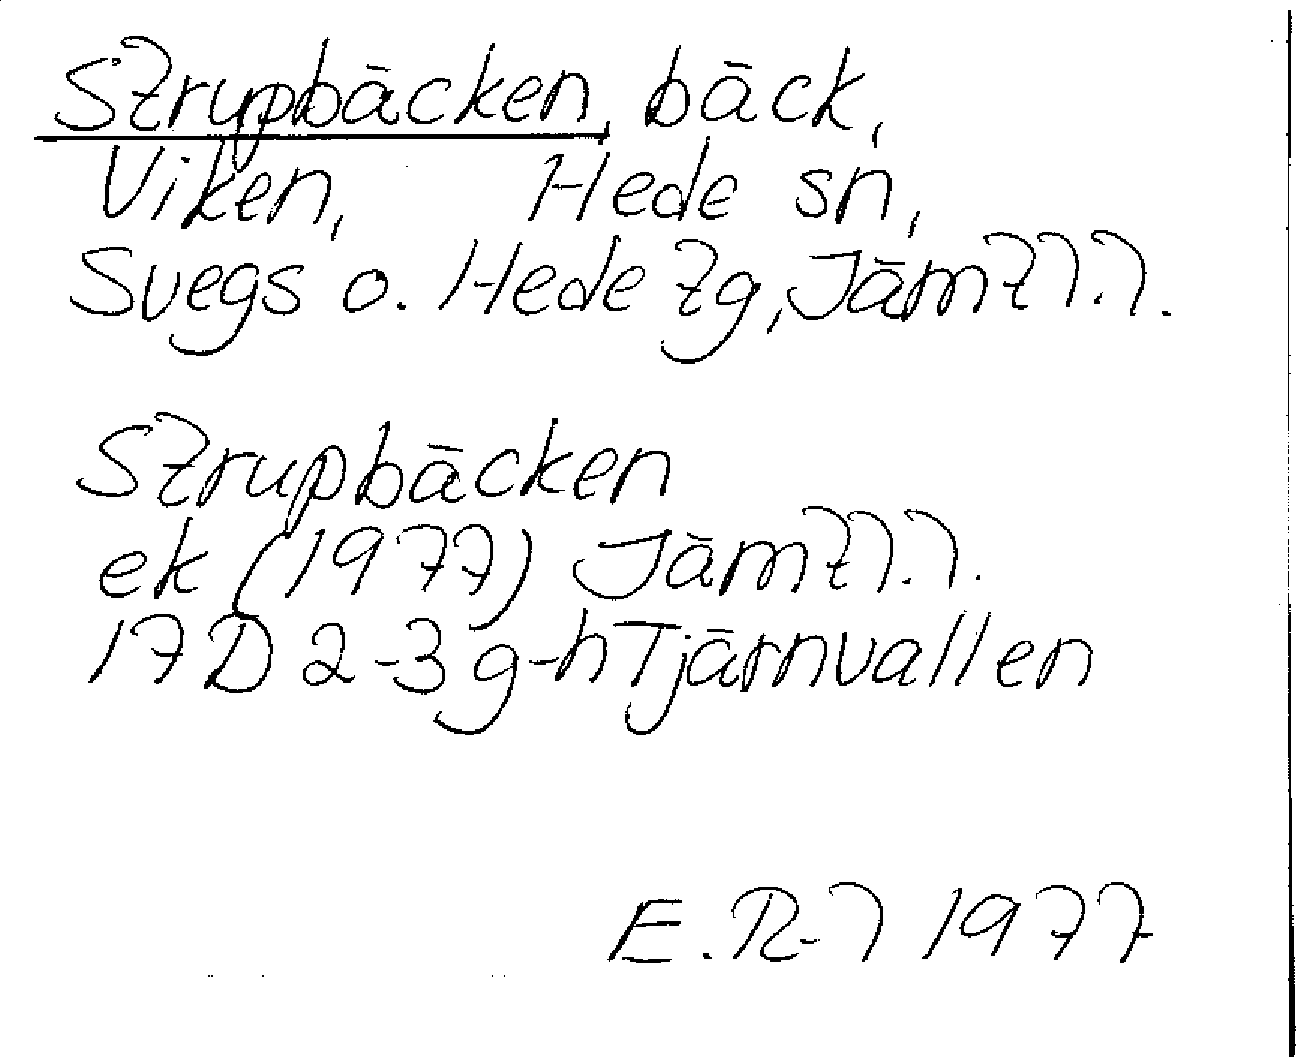 Strypbäcken, bäck,
Viken, Hede sn,
Svegs o. Hede tg, Jämtl.l.
Strupbäcken
ek (1977) Jämtl.l.
17D 2-3 g-h Tjärnvallen
E.R-l 1977